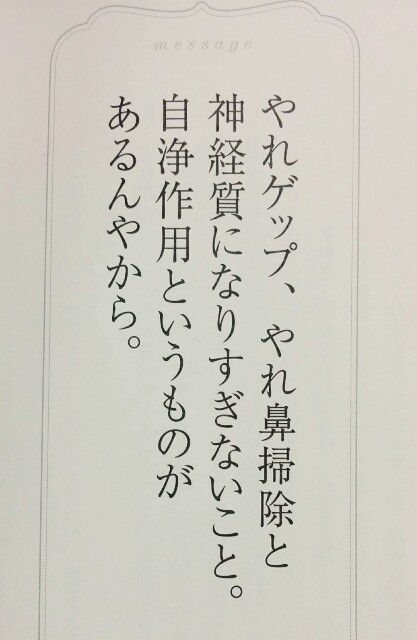 message
やれゲップ、やれ鼻掃除と
神経質になりすぎないこと。
自浄作用というものが
あるんやから。